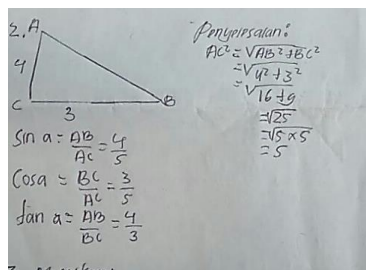 2. A
4
C
3
B
Sin a = AB/AC = 4/5
Cos a = BC/AC = 3/5
tan a = AB/BC = 4/3
Penyelesaian:
AC² = √AB² + BC²
= √4² + 3²
= √16 + 9
= √25
= √5 × 5
= 5